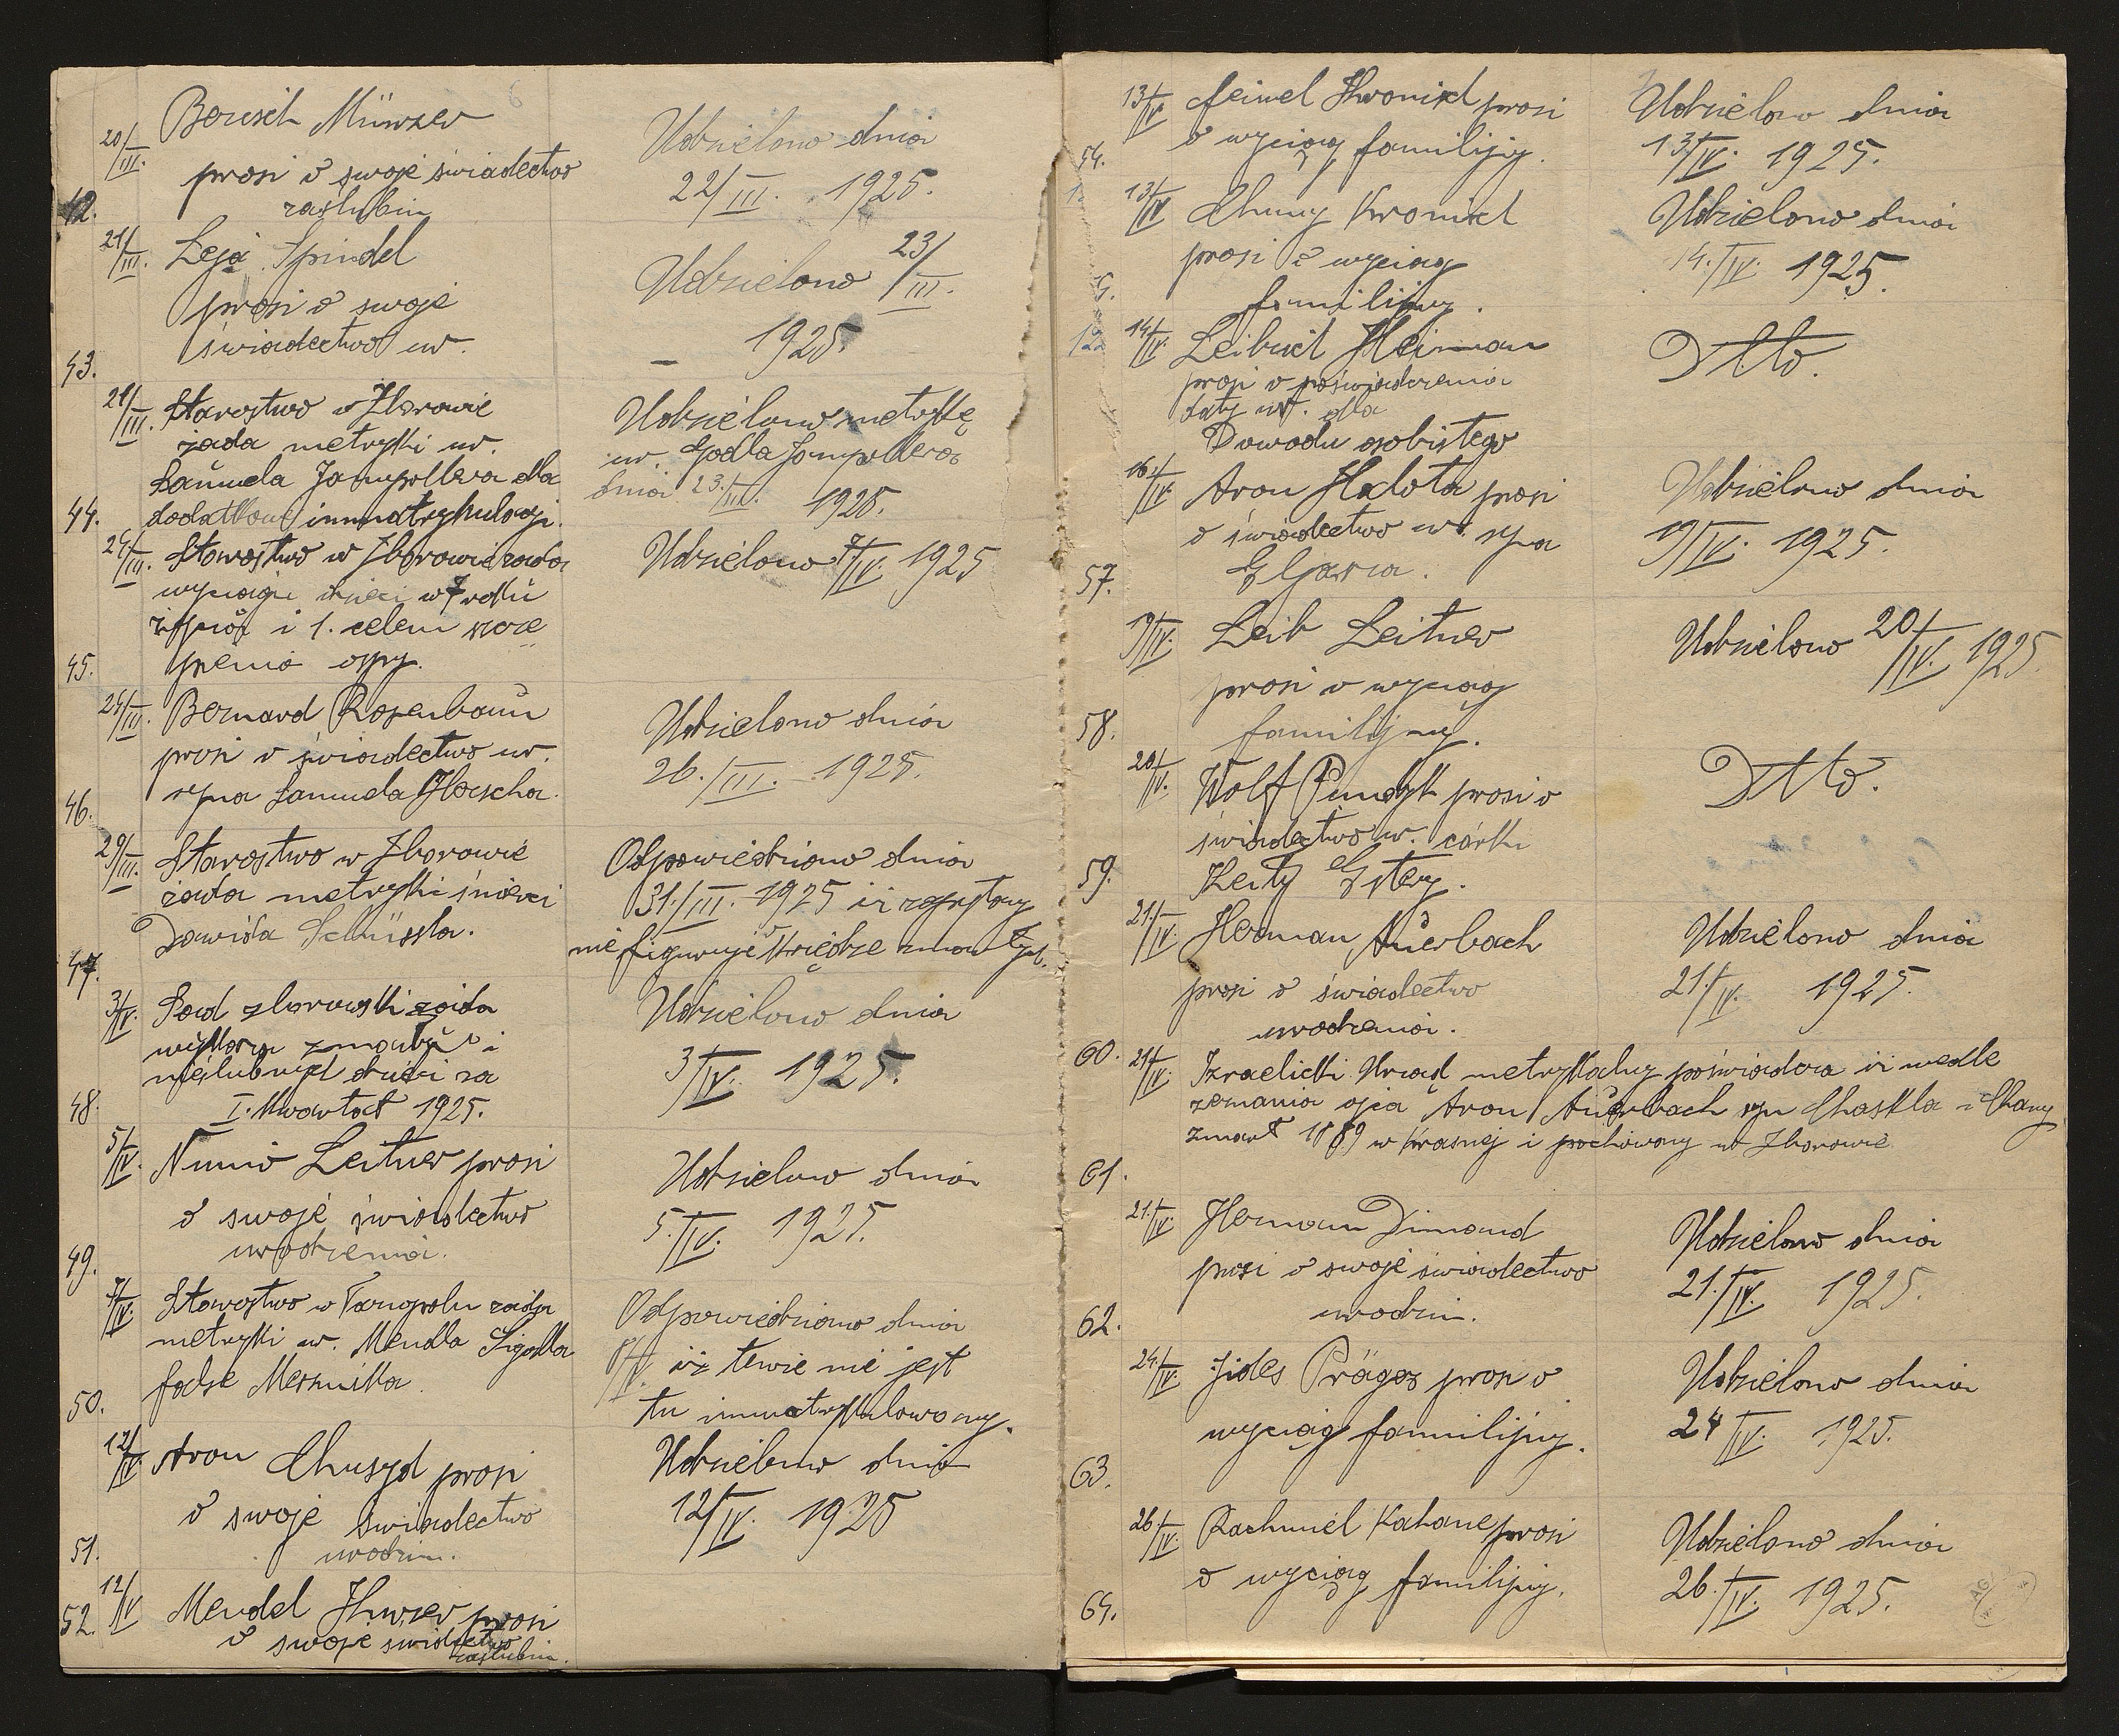 20/III. Berisch Münzer
prosi o swoje świadectwo
42. zaślubin
Udzielono dnia
22/III. 1925.
21/III. Leja Spindel
prosi o swoje
świadectwo ur.
43.
Udzielono 23/III.
1925.
21/III. Starostwo w Zborowie
żąda metryki ur.
Samuela Jampollera dla
44. dodatkowej immatrykulacji.
Udzielono metrykę
ur. Godla Jampollera
dnia 23./III. 1925.
24/III. Starostwo w Zborowie żąda
wyciągu dzieci w 7 roku
życia i 1. celem szcze
45. pienia ospy.
Udzielono 7/IV. 1925
24/III. Bernard Rosenbaum
prosi o świadectwo ur.
46. syna Samuela Herscha.
Udzielono dnia
26./III. 1925.
29/III. Starostwo w Zborowie
żąda metryki śmierci
Dawida Schüssla.
47.
Odpowiedziano dnia
31./III. 1925 iż zapytany
nie figuruje w księdze zmarłych.
3/IV. Sąd zborowski żąda
wykazu zmarłych i
nieślubnych dzieci za
48. I. kwartał 1925.
Udzielono dnia
3/IV. 1925.
5/IV. Nunio Leitner prosi
o swoje świadectwo
49. urodzenia.
Udzielono dnia
5./IV. 1925.
7/IV. Starostwo w Tarnopolu żąda
metryki ur. Mendla Sigalla
false Mesznika.
50.
Odpowiedziano dnia
8/IV. iż tenże nie jest
tu immatrykulowany.
12/IV. Aron Chusyd prosi
o swoje świadectwo
51. urodzin.
Udzielono dnia
12/IV. 1925
12/IV Mendel Hurzer prosi
52. o swoje świadectwo
zaślubin.
13/IV. Feiwel Kronisch prosi
o wyciąg familijny.
54.
Udzielono dnia
13/IV. 1925.
13/IV Chuny Kronisch
prosi o wyciąg
familijny.
Udzielono dnia
14./IV. 1925.
14/IV. Leibisch Heiman
prosi o poświadczenia
daty ur. dla
Dowodu osobistego
Dtto.
16./IV. Aron Hadota prosi
o świadectwo ur. syna
57. Eljasza.
Udzielono dnia
19/IV. 1925.
19/IV. Leib Leitner
prosi o wyciąg
58. familijny.
Udzielono 20/IV. 1925
20/IV. Wolf Pundyk prosi o
świadectwo ur. córki
59. Keity Estery.
Dtto.
21./IV. Herman Auerbach
prosi o świadectwo
urodzenia.
60.
Udzielono dnia
21./IV. 1925.
21/IV. Izraelicki Urząd metrykalny poświadcza iż wedle
zeznania ojca Aron Auerbach syn Chaskla i Chany
zmarł 1889 w Krasnej i pochowany w Zborowie
61.
21./IV. Herman Dimand
prosi o swoje świadectwo
62. urodzin.
Udzielono dnia
21./IV. 1925.
24./IV. Jides Präger prosi o
wyciąg familijny.
63.
Udzielono dnia
24/IV. 1925.
26./IV. Rachmiel Kahane prosi
o wyciąg familijny.
64.
Udzielono dnia
26./IV. 1925.